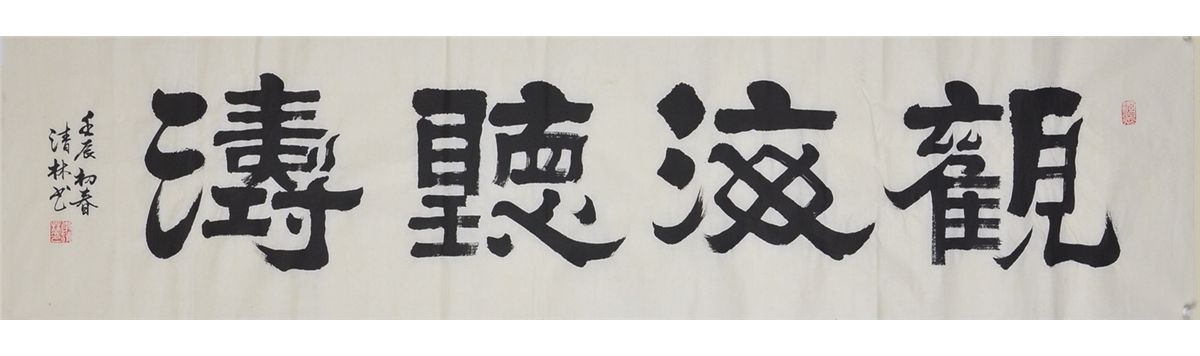 觀海聽濤
壬辰初春
清林书